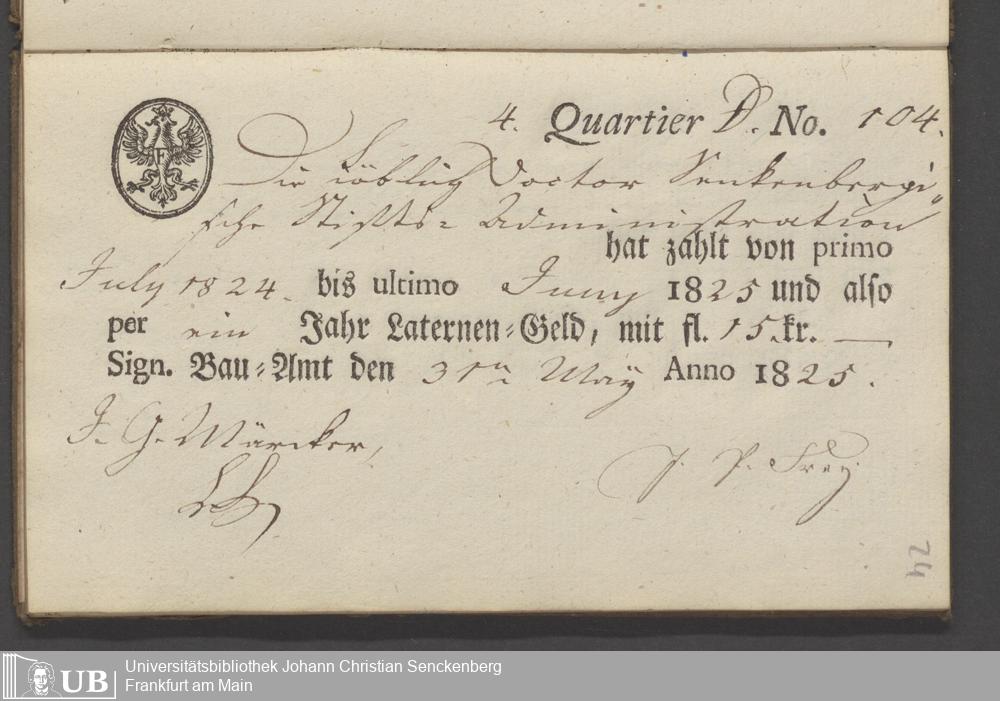 4. Quartier D. No. 104.
Die löblich Doctor Senkenbergi-
sche Stifts-Administration
hat zahlt von primo
July 1824. bis ultimo Juny 1825 und also
per ein Jahr Laternen-Geld, mit fl. 15. kr. —
Sign. Bau-Amt den 31n May Anno 1825.
J. G. Märcker,
J. P. Frey.
24
UB
Universitätsbibliothek Johann Christian Senckenberg
Frankfurt am Main